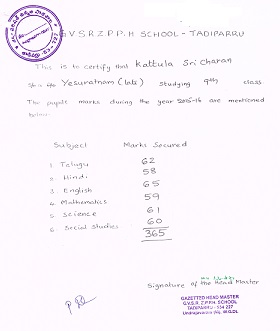 G.V.S.R.Z.P.P.H SCHOOL - TADIPARRU
This is to certify that Kattula Sri charan
Yesuratnam (late) studying 9th class.
The pupils marks during the year 2015-16 are mentioned
below.
Subject Marks Secured
1. Telugu 62
2. Hindi 58
3. English 65
4. Mathematics 59
5. Science 61
6. Social Studies 60
365
Signature of the Head Master
GAZETTED HEAD MASTER
G.V.S.R. Z.P.P.H. SCHOOL
TADIPARRU - 534 227
Undrajavaram (M), W.G.Dt.